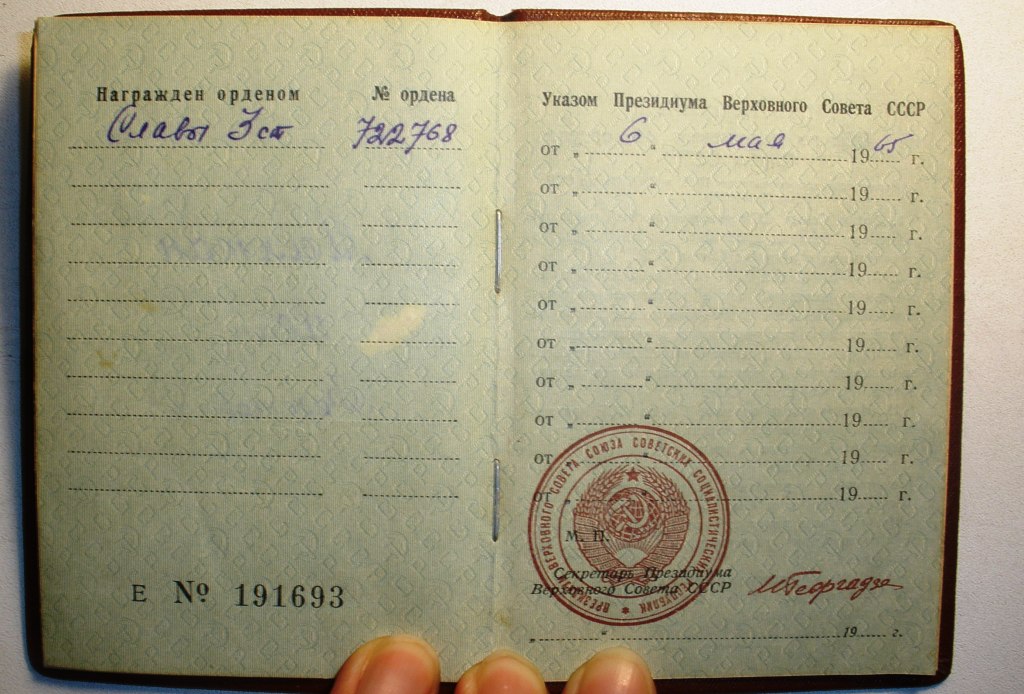 Награжден орденом № ордена
Славы 3 ст 722768
Е № 191693
Указом Президиума Верховного Совета СССР
от „ 6 “ мая 1965 г.
от „ “ 19 г.
от „ “ 19 г.
от „ “ 19 г.
от „ “ 19 г.
от „ “ 19 г.
от „ “ 19 г.
от „ “ 19 г.
от „ “ 19 г.
от „ “ 19 г.
М. П.
Секретарь Президиума
Верховного Совета СССР МГеоргадзе
„ “ 19 г.
ПРЕЗИДИУМ ВЕРХОВНОГО СОВЕТА СОЮЗА СОВЕТСКИХ СОЦИАЛИСТИЧЕСКИХ РЕСПУБЛИК